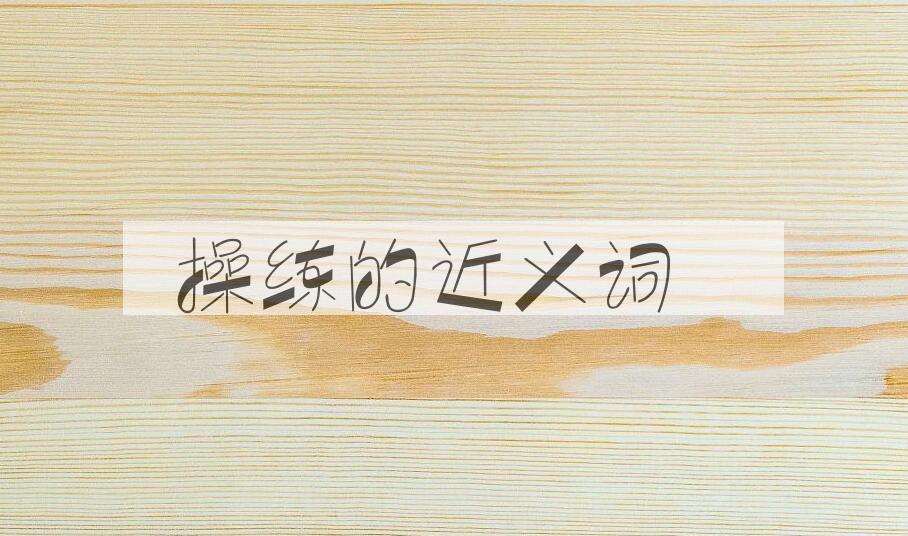 操练的近义词